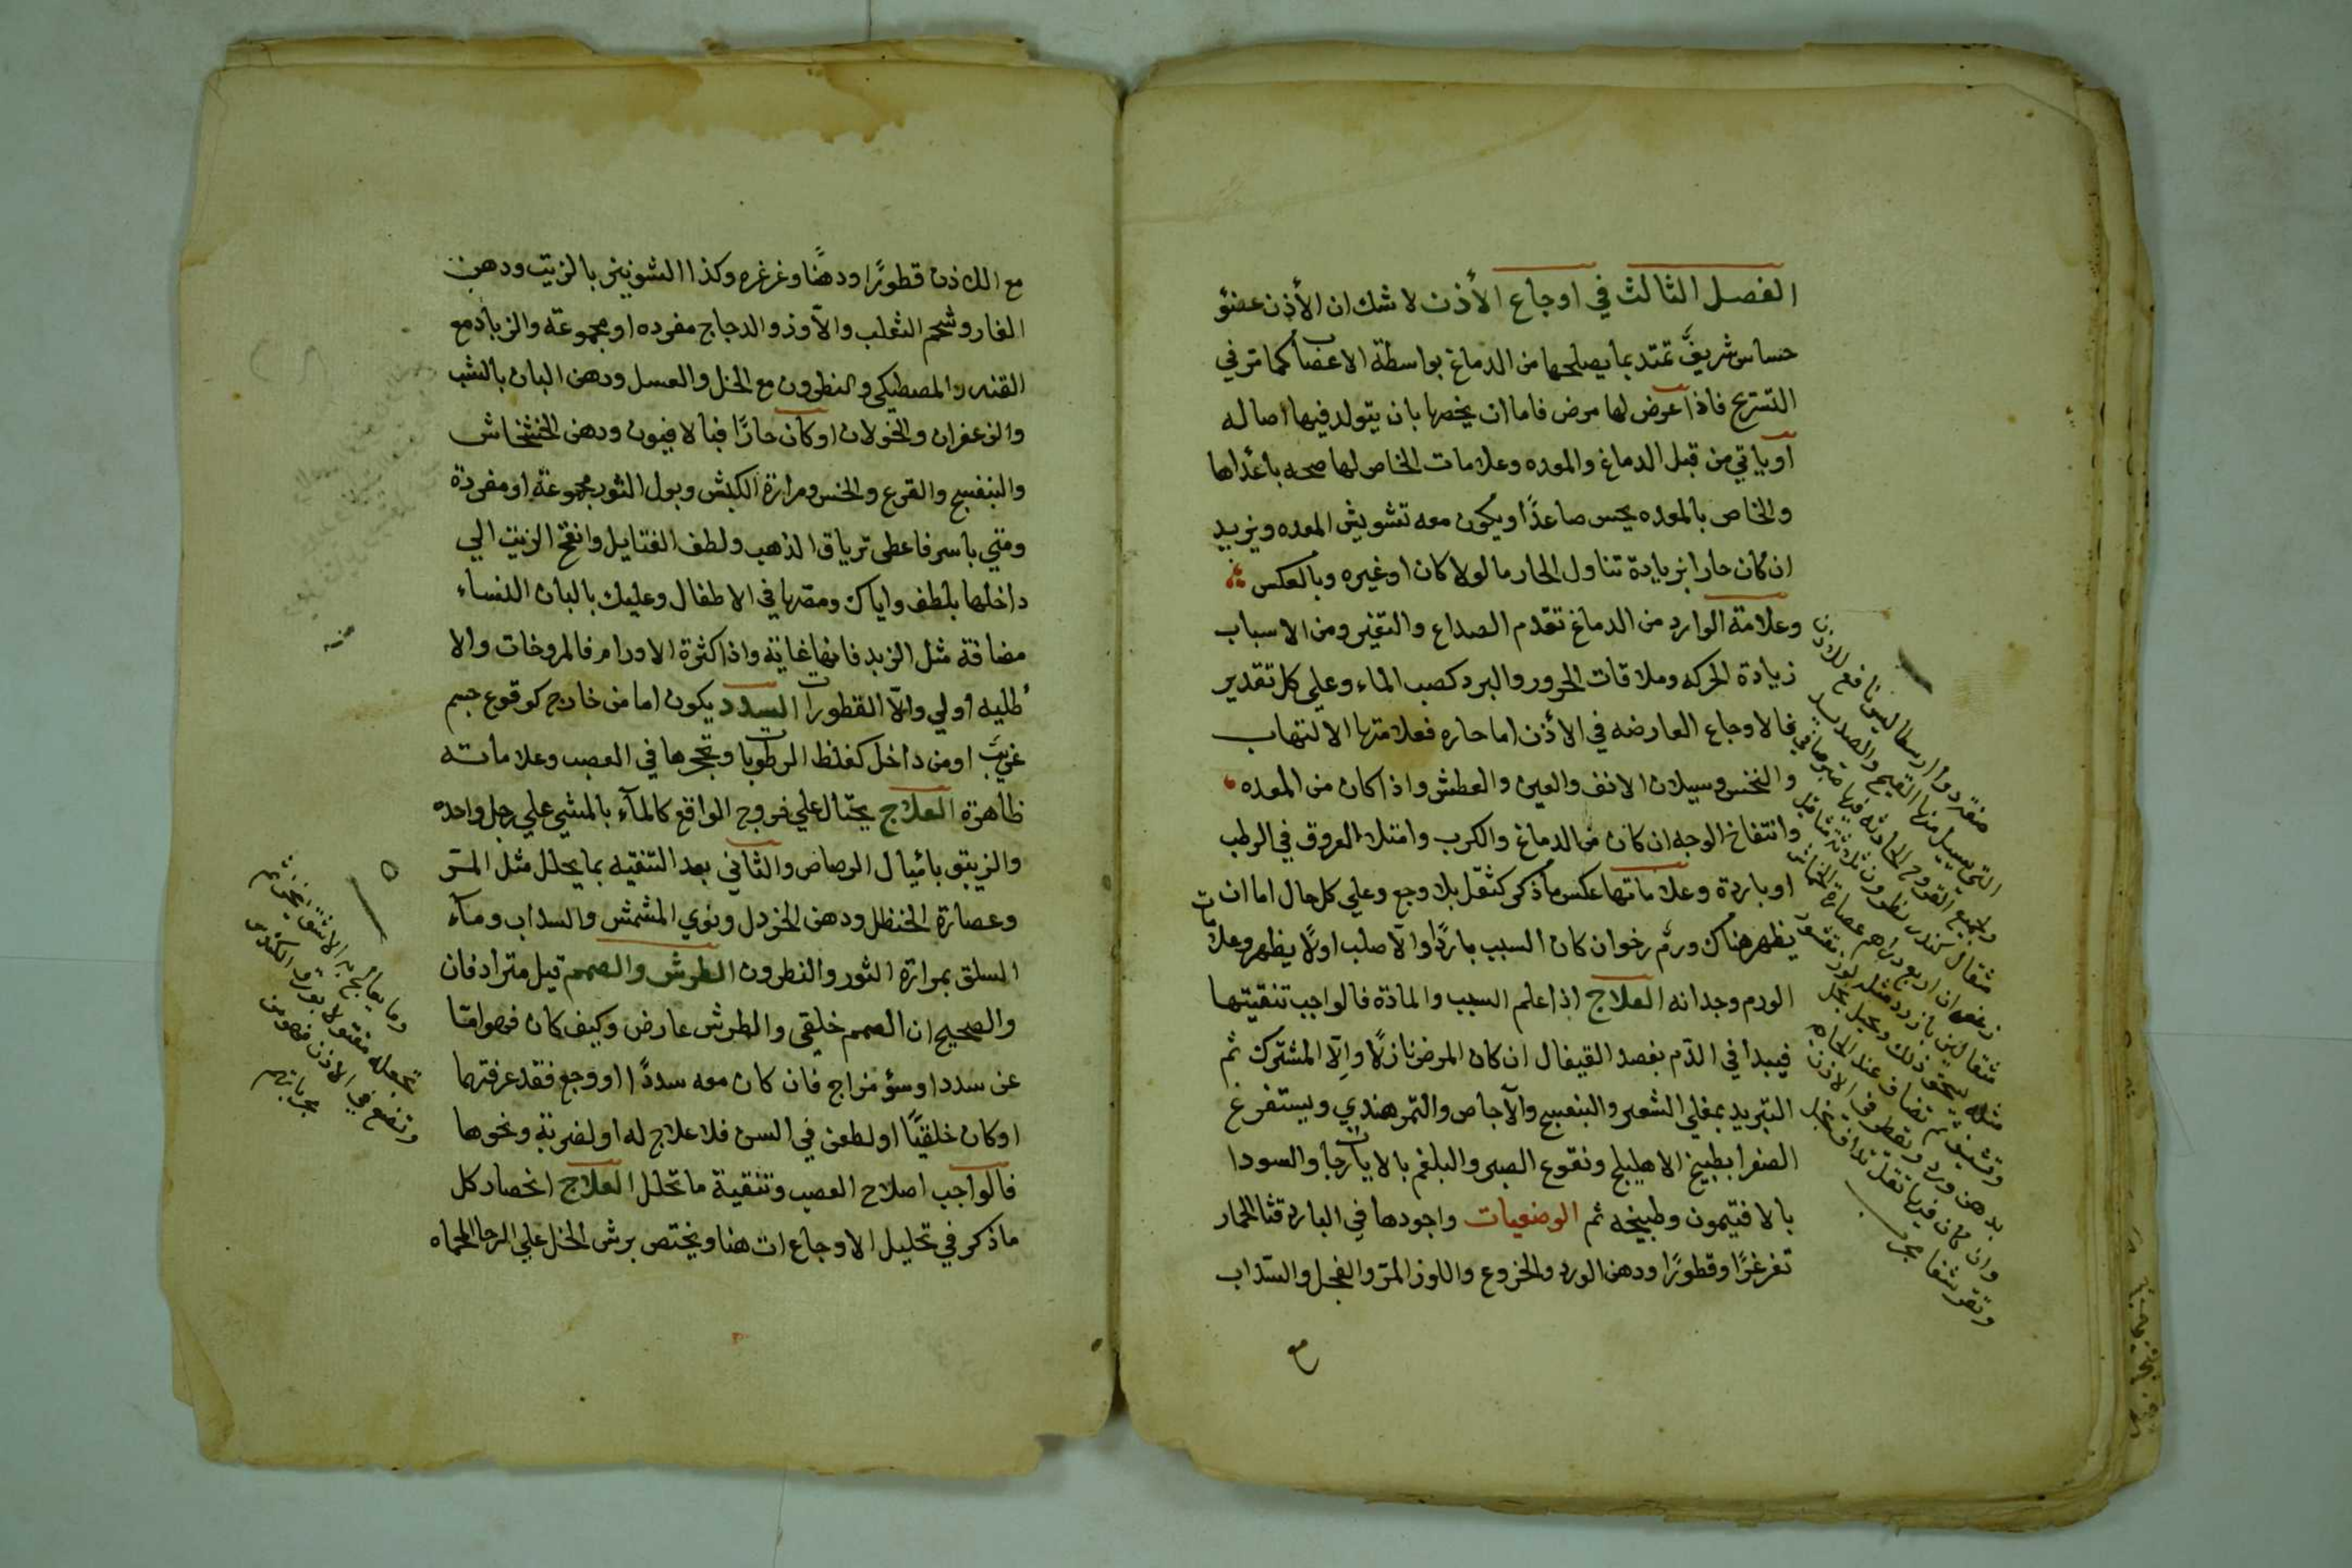 الفصل الثالث في اوجاع الأذن لا شك ان الأذن عضو
حساس شريف تمتد بما يصلحها من الدماغ بواسطة الاعصاب كما مر في
التشريح فاذا عرض لها مرض فاما ان يخصها بان يتولد فيها اصاله
او ياتي من قبل الدماغ والمعده وعلامات الخاص لها صحه باعداها
والخاص بالمعده يحس صاعدًا ويكون معه تشويش المعده ويزيد
ان كان حارا بزيادة تناول الحار ماكولا كان او غيره وبالعكس
وعلامة الوارد من الدماغ تقدم الصداع والتغير ومن الاسباب
زيادة الحركه وملاقات الحرور والبرد كصب الماء وعلي كل تقدير
فالاوجاع العارضه في الأذن اما حاره فعلامتها الالتهاب
والنخس وسيلان الانف والعين والعطش واذا كان من المعده
وانتفاخ الوجه ان كان من الدماغ والكرب وامتلا العروق في الرطب
او باردة وعلاماتها عكس ما ذكر كثقل بلا وجع وعلي كل حال اما ان
يظهر هناك ورم رخو ان كان السبب باردًا والا صلب اولا يظهر وعلامات
الورم وجدانه العلاج اذا علم السبب والمادة فالواجب تنقيتها
فيبدا في الدم بفصد القيفال ان كان المرض نازلًا والا المشترك ثم
التبريد بمغلي الشعير والبنفسج والآجاص والتمرهندي ويستفرغ
الصفرا بطبيخ الاهليلج ونقوع الصبر والبلغم بالايارجات والسودا
بالافتيمون وطبيخه ثم الوضعيات واجودها في البارد قثا الحمار
تغرغرًا وقطورًا ودهن الورد والخروع واللوز المر والفجل والسداب
مع
منقردوا ارسطاليس نافع للاذن
التي يسيل منها القيح والصديد
ولجميع القروح الحادثه فيها
مثقال كندر نطرون ثلاثة مثاقيل
زعفران اربع دراهم عصارة الخشخاش
مثقالين بارزد مثله لوز مقشور
مثله يسحق ذلك ويحل بخل
بدهن ورد ويقطر في الاذن
مع اللاذن قطورًا ودهنًا وغرغره وكذا الشونيز بالزيت ودهن
الغار وشحم الثعلب والآوز والدجاج مفرده او مجموعة والزباد مع
القنه والمصطكي والنطرون مع الخل والعسل ودهن البان بالشب
والزعفران والخولان او كان حارًا فبالافيون ودهن الخشخاش
والبنفسج والقرع والخس ومرارة الكبش وبول الثور مجموعة او مفردة
ومتي باسر فاعطي ترياق الذهب ولطف الفتايل وانفخ الزيت الي
داخلها بلطف واياك ومصها في الاطفال وعليك بالبان النساء
مضافة مثل الزبد فانها غاية واذا كثرة الاورام فالمروخات والا
طليه اولي والا القطورات السدد يكون اما من خارج كوقوع جسم
غريب او من داخل كغلظ الرطوبات وتحجرها في العصب وعلاماته
ظاهرة العلاج يحتال علي خروج الواقع كالمآء بالمشي علي رجل واحده
والزيبق باميال الرصاص والثاني بعد التنقيه بما يحلل مثل المر
وعصارة الحنظل ودهن الخردل ونوي المشمش والسداب ومآء
السلق بمرارة الثور والنطرون الطرش والصمم قيل مترادفان
والصحيح ان الصمم خلقي والطرش عارض وكيف كان فهو اما
عن سدد او سؤ مزاج فان كان معه سددًا او وجع فقد عرفتهما
او كان خلقيًا او لطعن في السن فلا علاج له او لضربة ونحوها
فالواجب اصلاح العصب وتنقية ما تحلل العلاج انحصار كل
ما ذكر في تحليل الاوجاع ات هنا ويختص برش الخل علي الرحا المحماه
وما يعالج به
تجعله
وتضع في الاذن فهو من